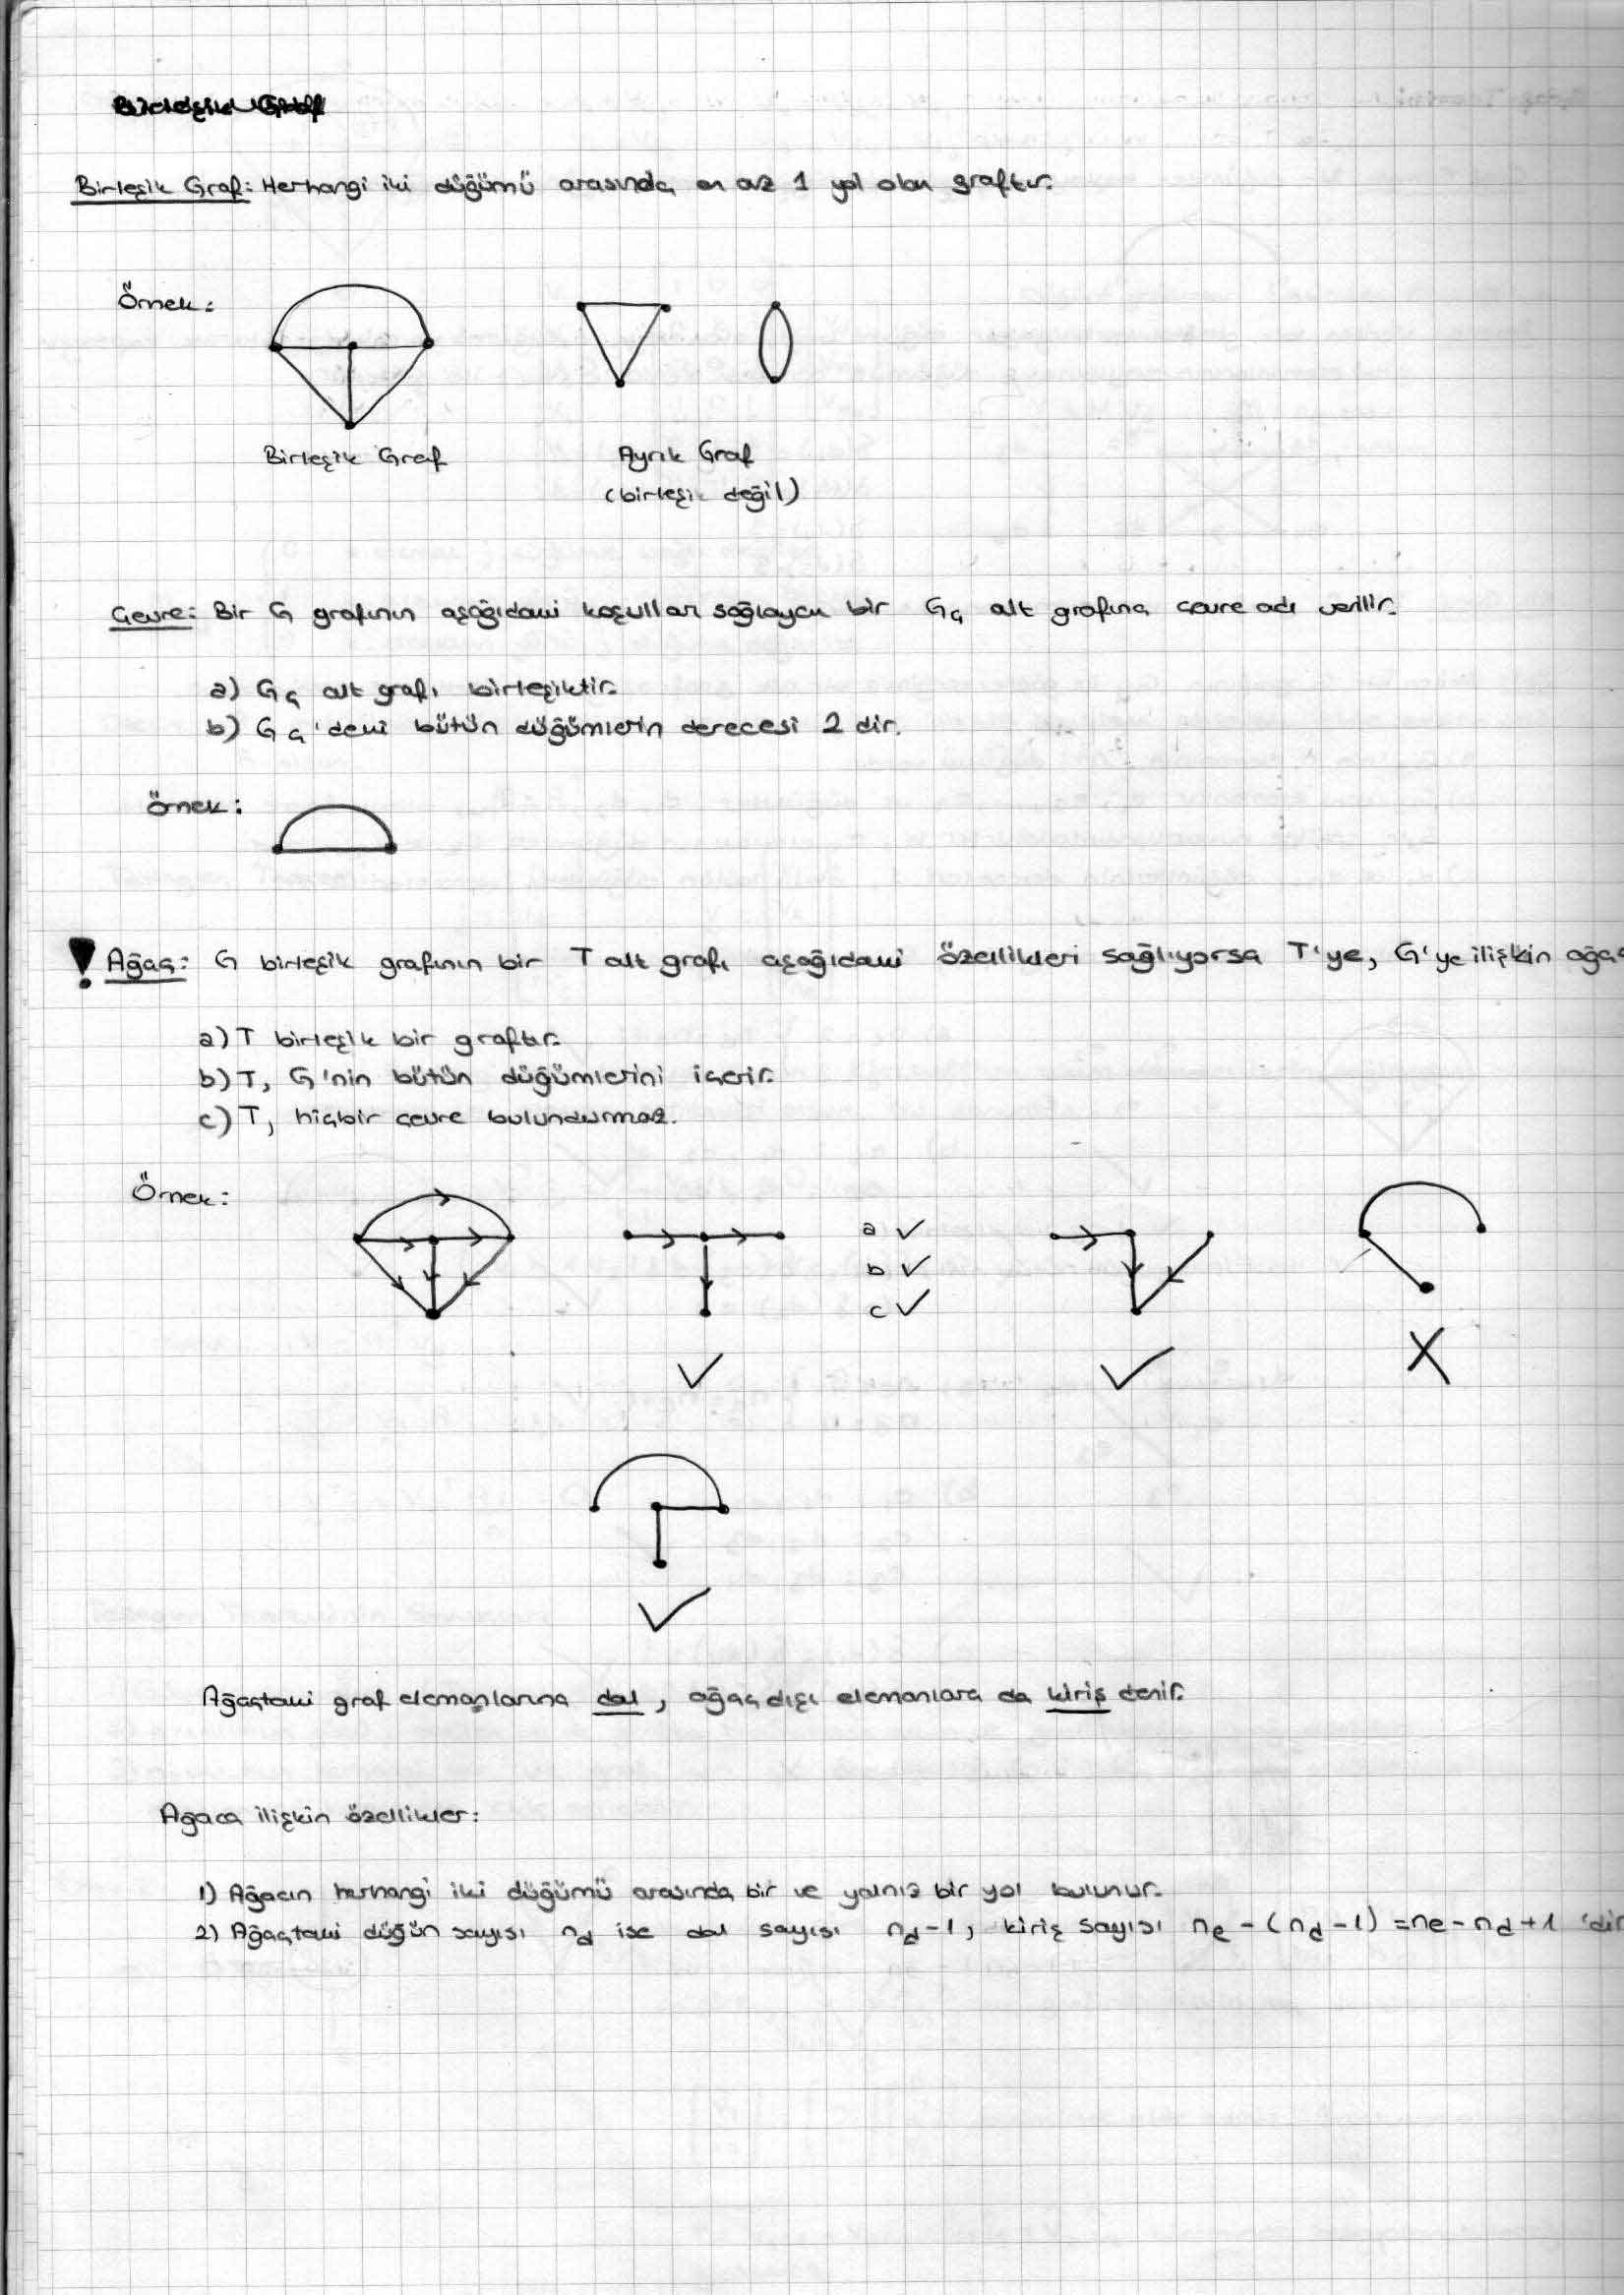 Birleşik Graf
Birleşik Graf: Herhangi iki düğümü arasında en az 1 yol olan graftır.
Örnek:
Birleşik Graf
Ayrık Graf
(birleşi değil)
Çevre: Bir G grafının aşağıdaki koşulları sağlayan bir Gç alt grafına çevre adı verilir.
a) Gç alt grafı birleşiktir.
b) Gç'deki bütün düğümlerin derecesi 2 dir.
Örnek:
! Ağaç: G birleşik grafının bir T alt grafı aşağıdaki özellikleri sağlıyorsa T'ye, G'ye ilişkin ağaç
a) T birleşik bir graftır.
b) T, G'nin bütün düğümlerini içerir.
c) T, hiçbir çevre bulundurmaz.
Örnek:
a ✓
b ✓
c ✓
✓ ✓ X
✓
Ağaçtaki graf elemanlarına dal, ağaç dışı elemanlara da kiriş denir.
Ağaca ilişkin özellikler:
1) Ağacın herhangi iki düğümü arasında bir ve yalnız bir yol bulunur.
2) Ağaçtaki düğün sayısı nd ise dal sayısı nd-1, kiriş sayısı ne-(nd-1)=ne-nd+1 'dir